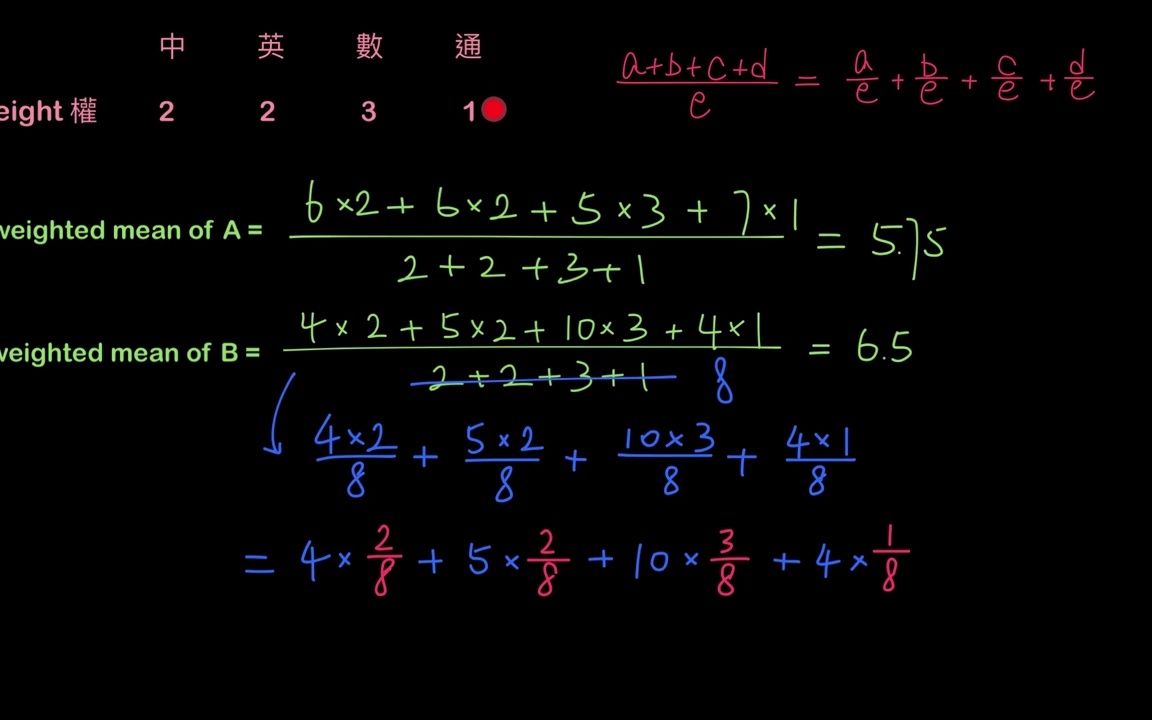 中 英 數 通
eight 權 2 2 3 1
(a+b+c+d)/e = a/e + b/e + c/e + d/e
weighted mean of A = (6×2 + 6×2 + 5×3 + 7×1)/(2+2+3+1) = 5.75
weighted mean of B = (4×2 + 5×2 + 10×3 + 4×1)/(2+2+3+1) = 6.5
8
(4×2)/8 + (5×2)/8 + (10×3)/8 + (4×1)/8
= 4 × 2/8 + 5 × 2/8 + 10 × 3/8 + 4 × 1/8